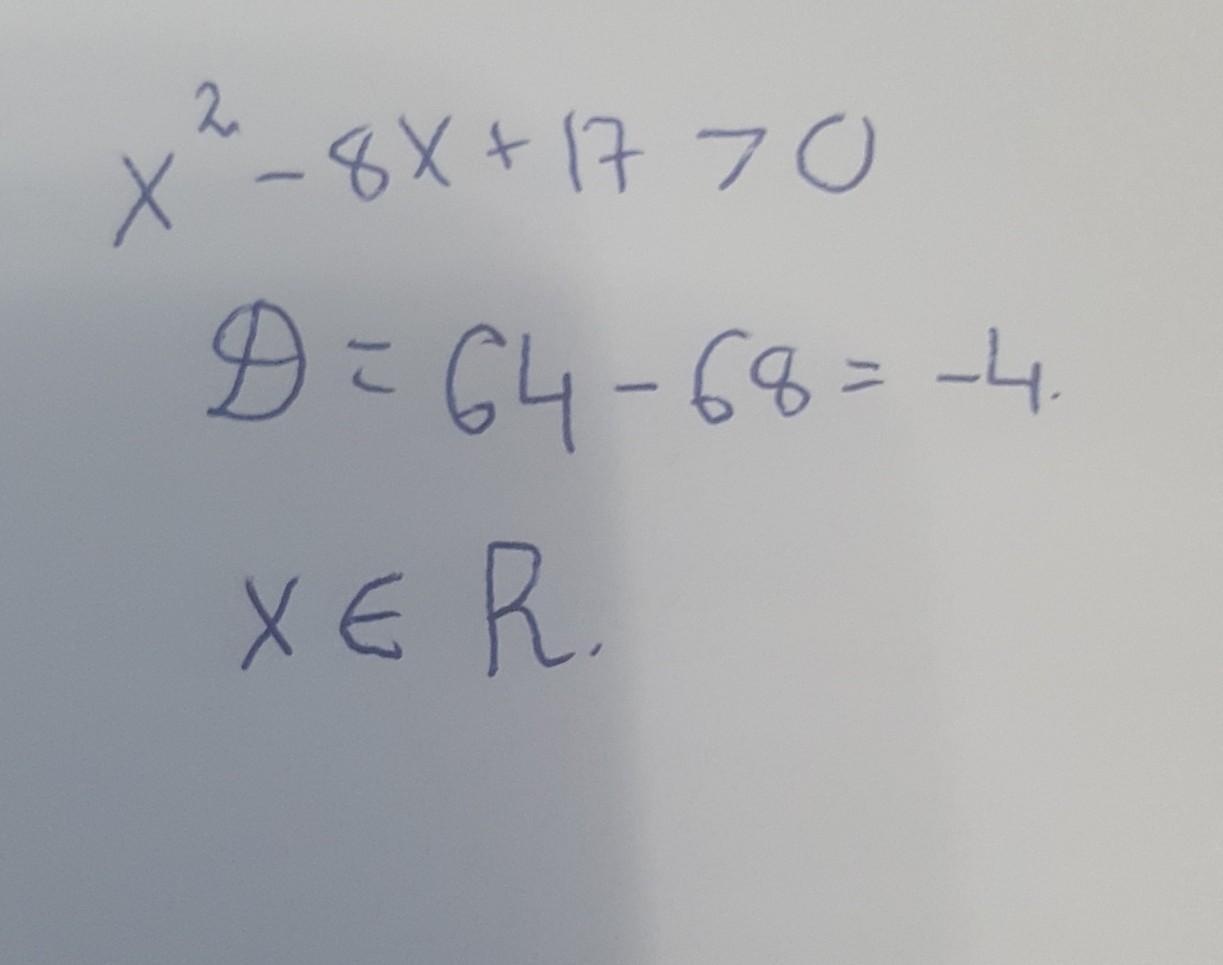 x² - 8x + 17 > 0
D = 64 - 68 = -4.
x ∈ R.